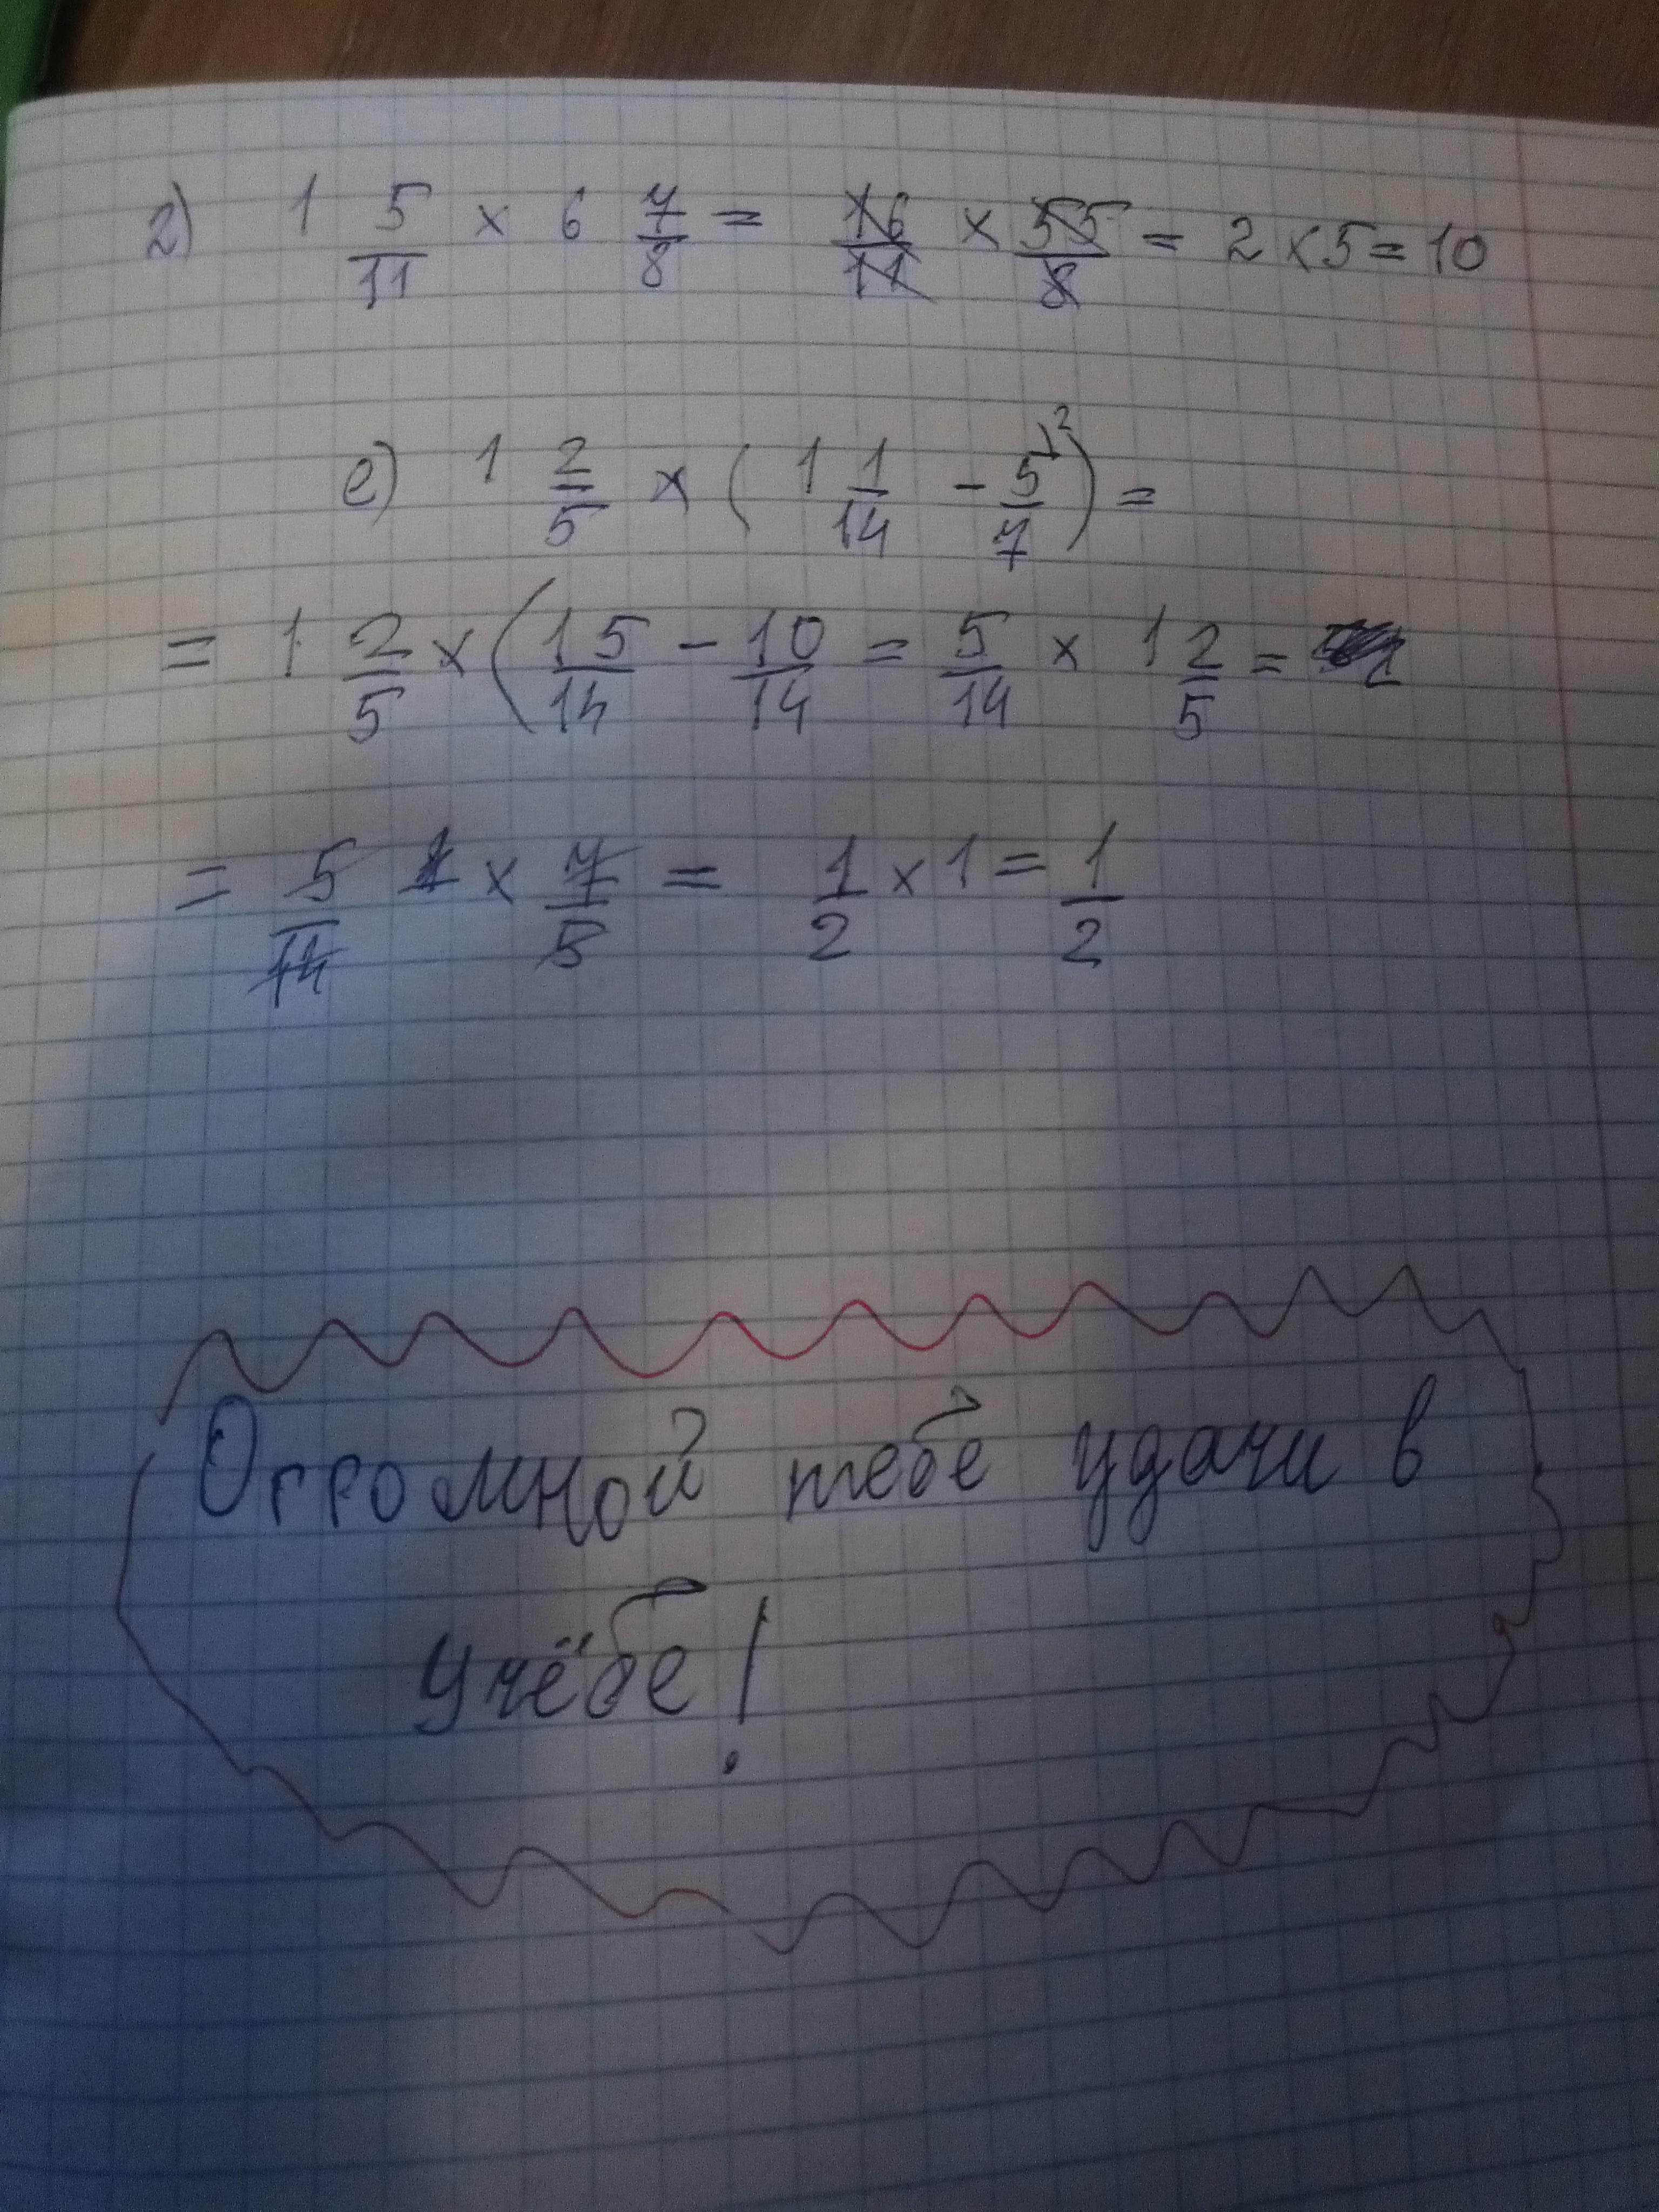 2) 1 5/11 × 6 7/8 = 16/11 × 55/8 = 2 × 5 = 10
е) 1 2/5 × ( 1 1/14 - 5/7 \2 ) =
= 1 2/5 × ( 15/14 - 10/14 = 5/14 × 1 2/5 =
= 5/14 × 7/5 = 1/2 × 1 = 1/2
Огромной тебе удачи в
учёбе!